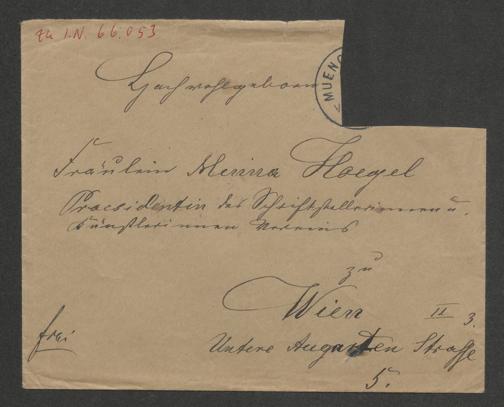 Zu I.N. 66.053
MUENC
Hochwohlgeboren
Fräulein Minna Hoegel
Praesidentin des Schriftstellerinnen u.
Künstlerinnen Vereins
zu
Wien II 3.
frei
Untere Augarten Straße
5.